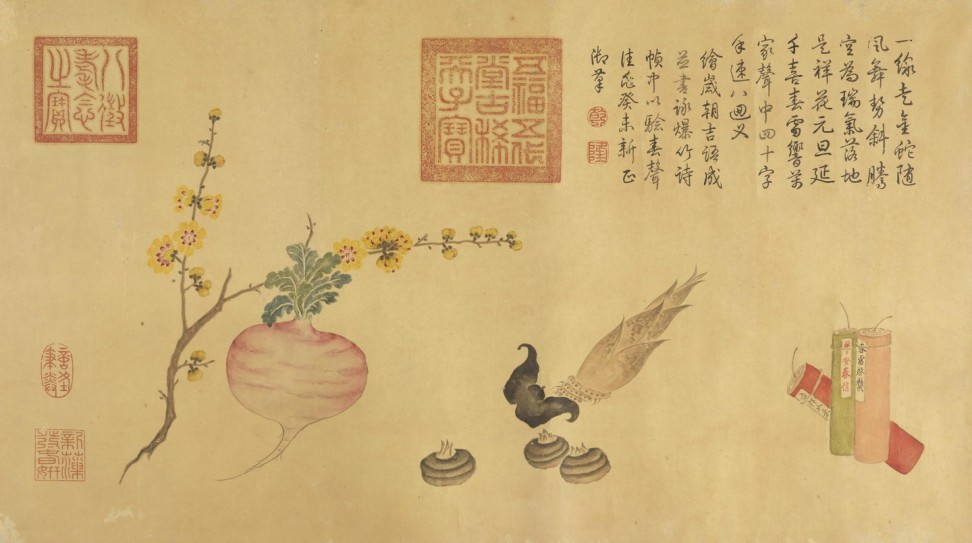 一線走金蛇隨
風舞勢斜騰
空為瑞氣落地
是祥花元旦延
千喜春雷響萬
家聲中四十字
手速八回叉
繪歲朝吉語成
並書詠爆竹詩
幀中以驗春聲
佳兆癸未新正
御筆
乾
隆
五福五代
堂古稀
天子寶
八徵
耄念
之寶
平安春信